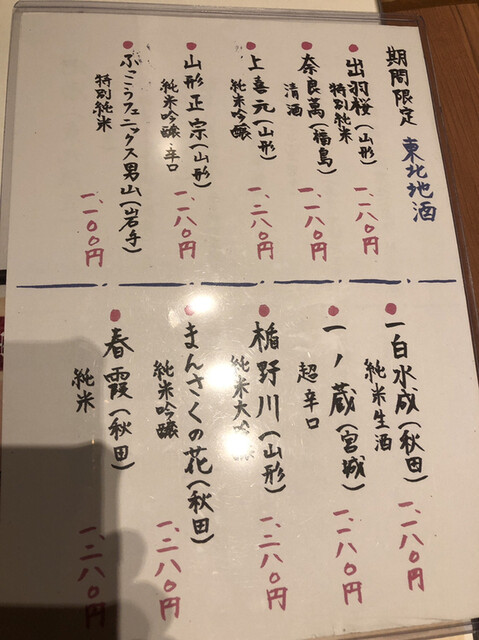 期間限定 東北地酒
出羽桜(山形)
特別純米
一、一八〇円
奈良萬(福島)
清酒
一、一八〇円
上喜元(山形)
純米吟醸
一、二八〇円
山形正宗(山形)
純米吟醸・辛口
一、一八〇円
フェニックス男山(岩手)
特別純米
一、一〇〇円
一白水成(秋田)
純米生酒
一、一八〇円
一ノ蔵(宮城)
超辛口
一、一八〇円
楯野川(山形)
純米大吟醸
一、二八〇円
まんさくの花(秋田)
純米吟醸
一、二八〇円
春霞(秋田)
純米
一、二八〇円